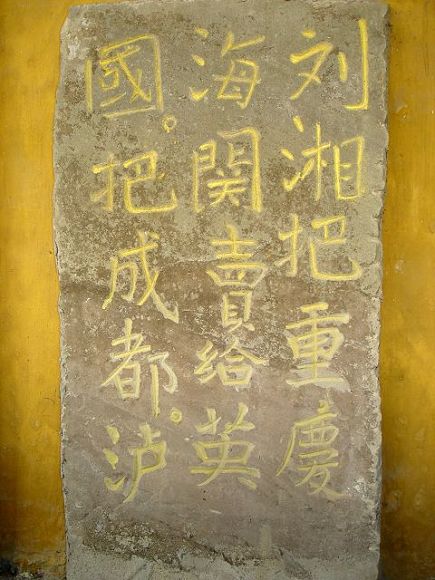 刘湘把重慶
海関賣给英
國。把成都。泸